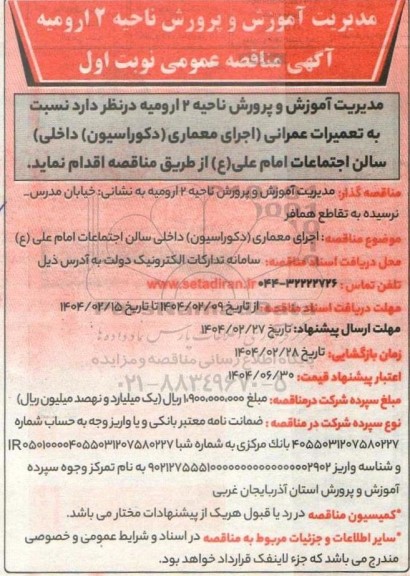 مدیریت آموزش و پرورش ناحیه ۲ ارومیه
آگهی مناقصه عمومی نوبت اول
مدیریت آموزش و پرورش ناحیه ۲ ارومیه درنظر دارد نسبت
به تعمیرات عمرانی (اجرای معماری (دکوراسیون) داخلی)
سالن اجتماعات امام علی(ع) از طریق مناقصه اقدام نماید.
مناقصه گذار: مدیریت آموزش و پرورش ناحیه ۲ ارومیه به نشانی: خیابان مدرس_
نرسیده به تقاطع همافر
موضوع مناقصه: اجرای معماری (دکوراسیون) داخلی سالن اجتماعات امام علی (ع)
محل دریافت اسناد مناقصه: سامانه تدارکات الکترونیک دولت به آدرس ذیل
تلفن تماس: ۳۲۲۲۲۷۲۶-۰۴۴ www.setadiran.ir
مهلت دریافت اسناد مناقصه: از تاریخ ۱۴۰۴/۰۲/۰۹ تا تاریخ ۱۴۰۴/۰۲/۱۵
مهلت ارسال پیشنهاد: تاریخ ۱۴۰۴/۰۲/۲۷
زمان بازگشایی: تاریخ ۱۴۰۴/۰۲/۲۸
پایگاه اطلاع رسانی مناقصه و مزایده
اعتبار پیشنهاد قیمت: ۱۴۰۴/۰۶/۳۰
۰۲۱-۸۸۳۴۹۶۷۰-۵
مبلغ سپرده شرکت درمناقصه: مبلغ ۱،۹۰۰،۰۰۰،۰۰۰ ریال (یک میلیارد و نهصد میلیون ریال)
نوع سپرده شرکت در مناقصه: ضمانت نامه معتبر بانکی و یا واریز وجه به حساب شماره
۴۰۵۵۰۳۱۲۰۷۵۸۰۲۲۷ بانک مرکزی به شماره شبا IR۰۵۰۱۰۰۰۰۴۰۵۵۰۳۱۲۰۷۵۸۰۲۲۷
و شناسه واریز به نام تمرکز وجوه سپرده
آموزش و پرورش استان آذربایجان غربی
*کمیسیون مناقصه در رد یا قبول هریک از پیشنهادات مختار می باشد.
*سایر اطلاعات و جزئیات مربوط به مناقصه در اسناد و شرایط عمومی و خصوصی
مندرج می باشد که جزء لاینفک قرارداد خواهد بود.